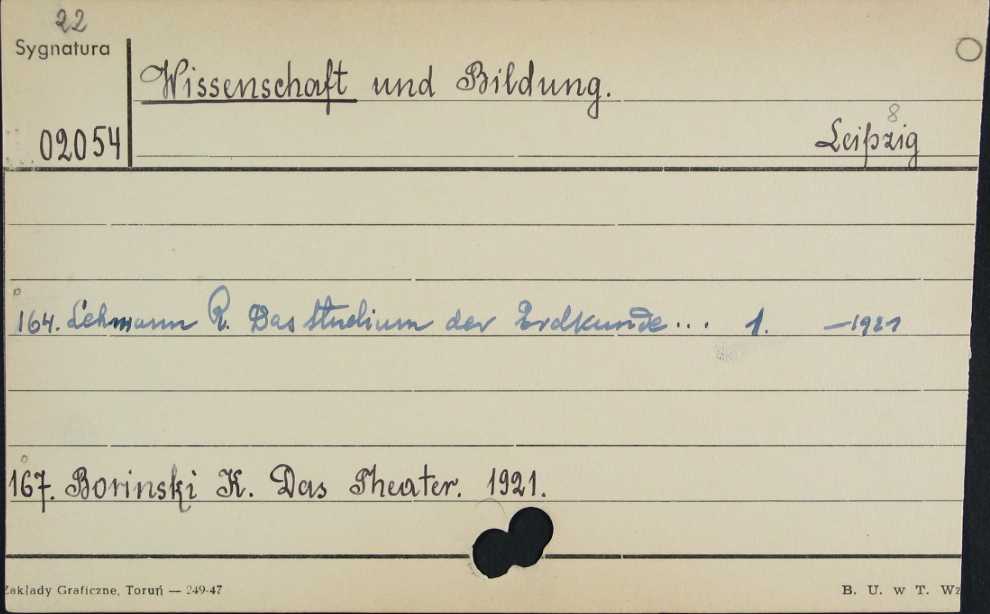 22
Sygnatura
Wissenschaft und Bildung.
8
02054
Leipzig
164. Lehmann R. Das Studium der Erdkunde... 1. —1921
167. Borinski K. Das Theater. 1921.
Zakłady Graficzne, Toruń — 249-47
B. U. w T. Wz